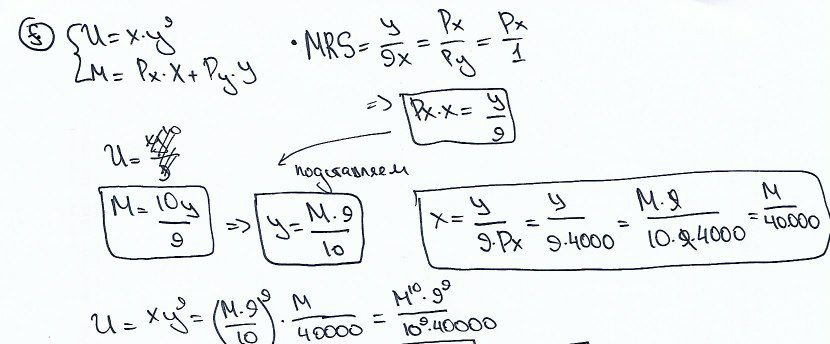 5) { U = x·y⁹
M = Px·X + Py·y
· MRS = y/9x = Px/Py = Px/1
=> Px·x = y/9
U =
подставляем
M = 10y/9 => y = M·9/10
x = y/(9·Px) = y/(9·4000) = M·9/(10·9·4000) = M/40.000
U = xy⁹ = (M·9/10)⁹ · M/40000 = M¹⁰·9⁹/(10⁹·40000)